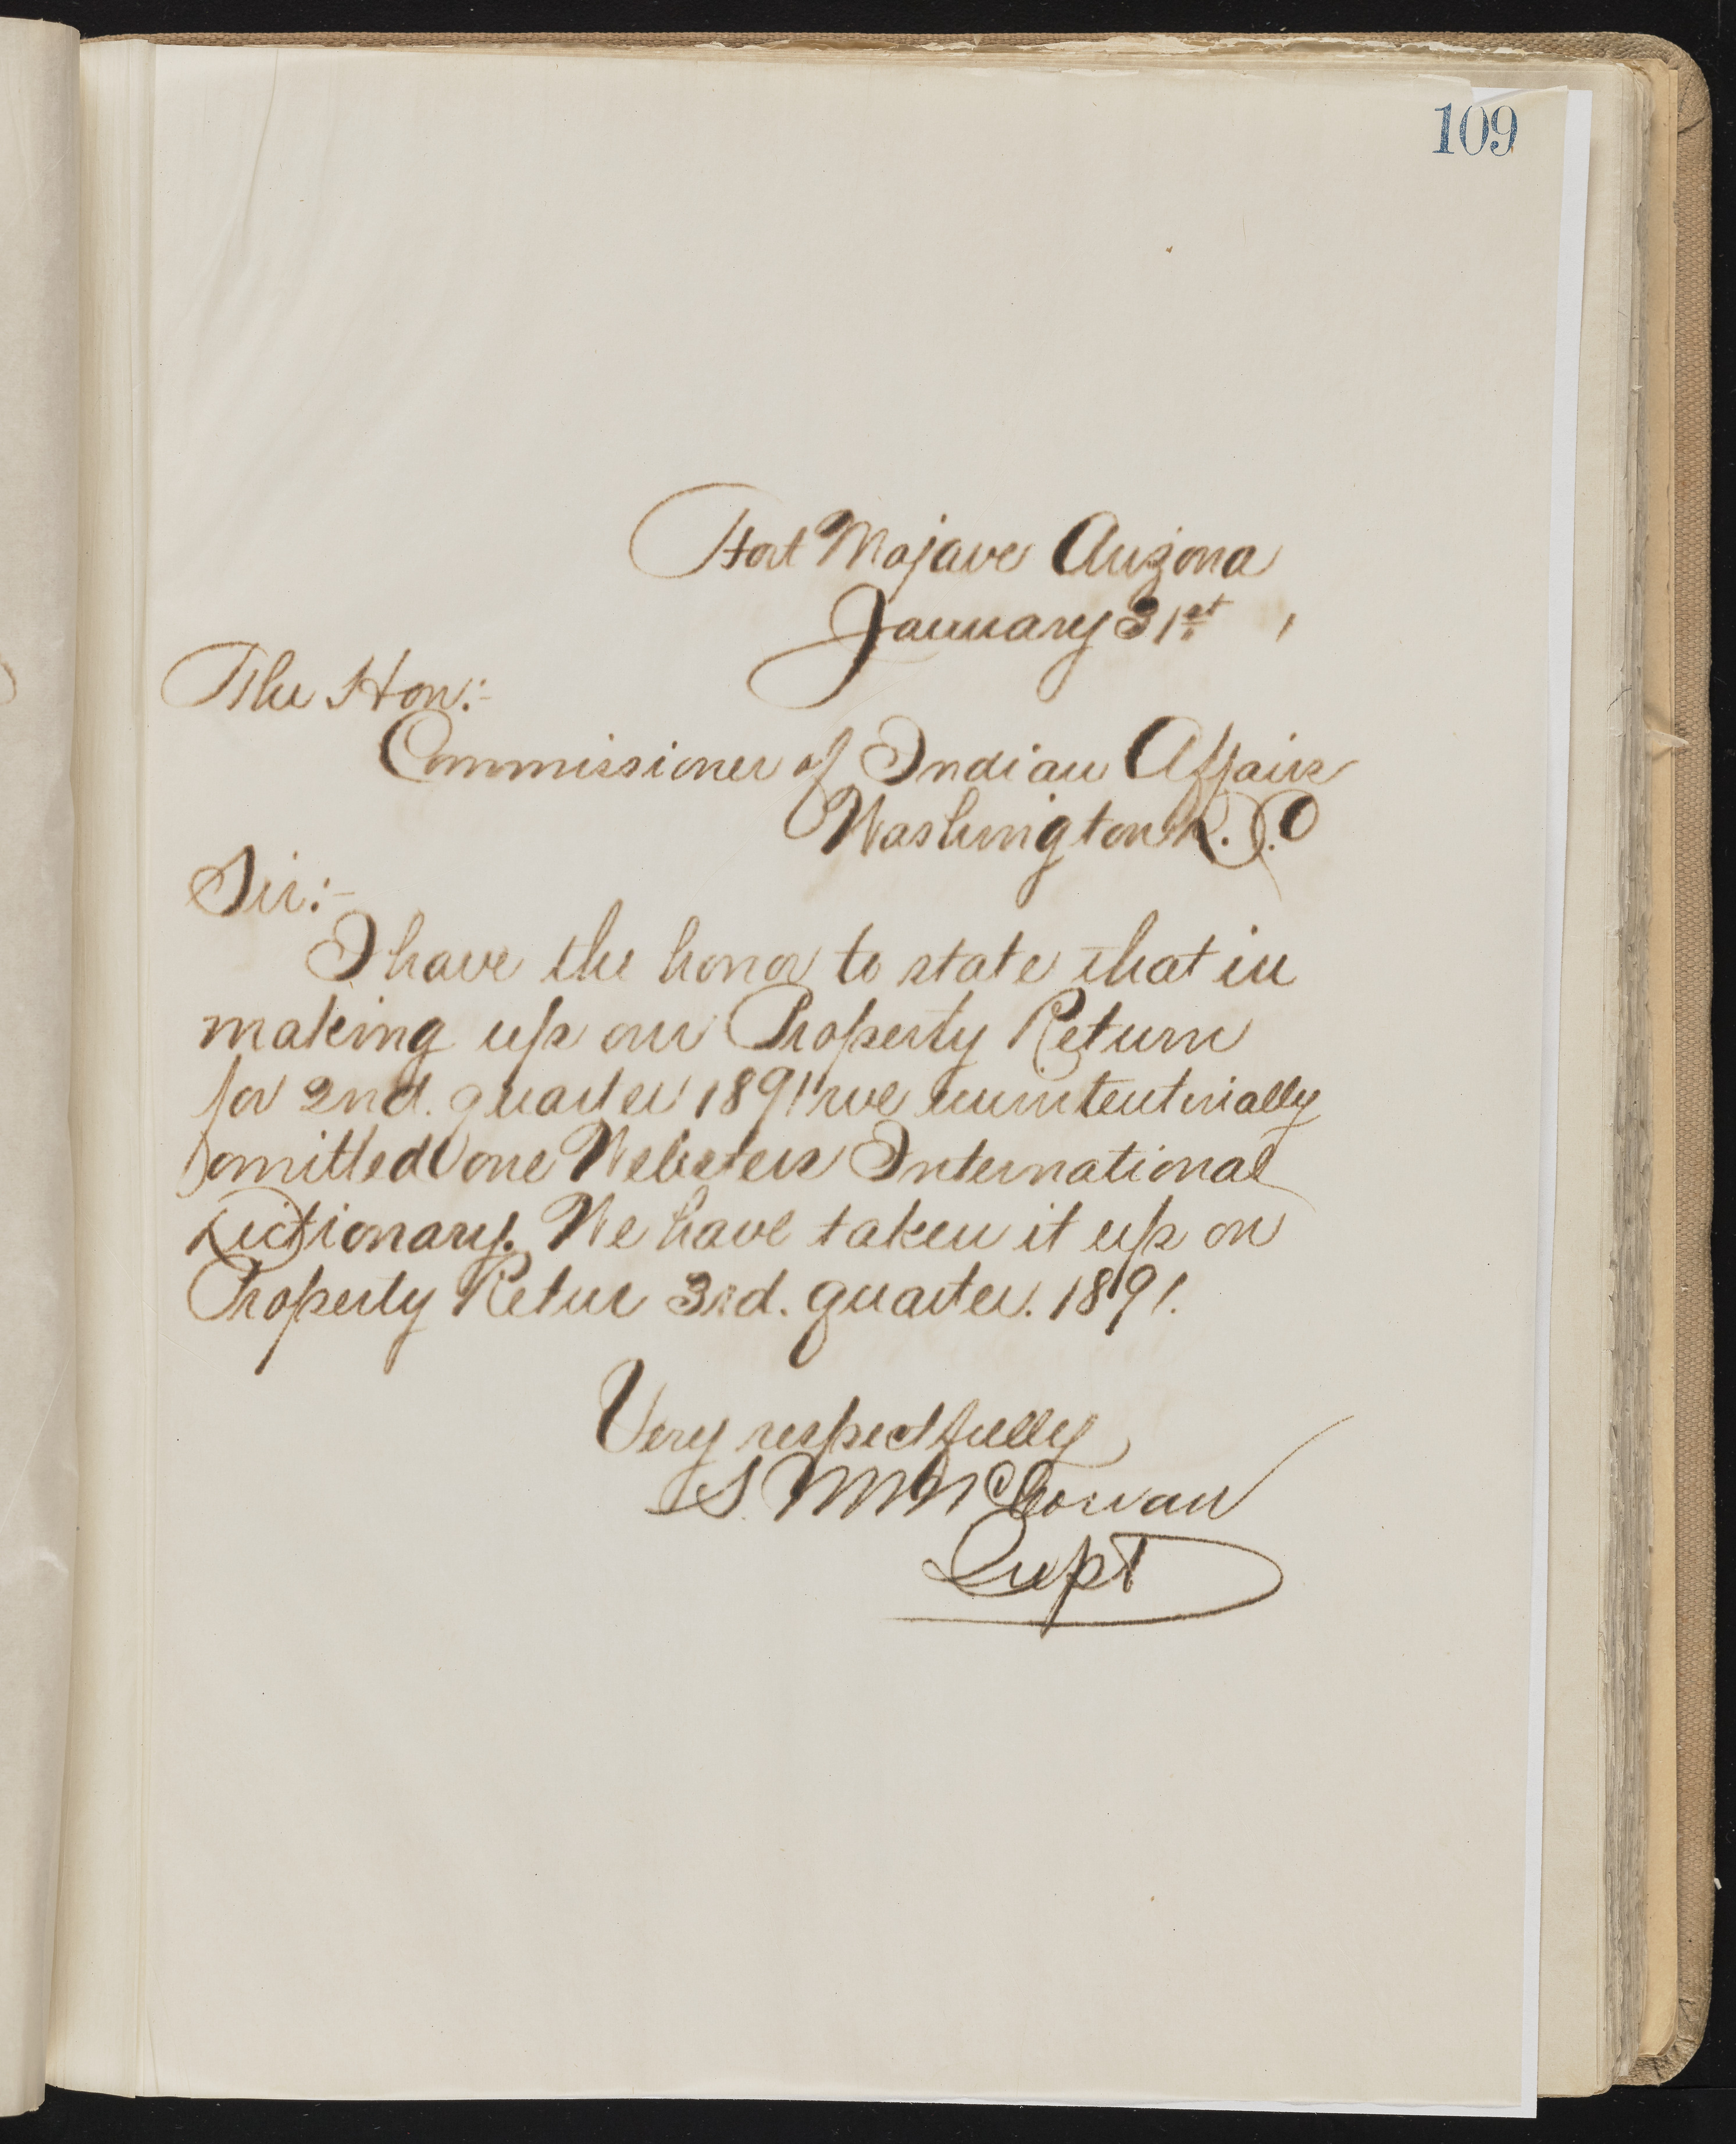 109
Fort Mojave Arizona
January 31st
The Hon:-
Commissioner of Indian Affairs
Washington D. C
Sir:-
I have the honor to state that in
making up our Property Return
for 2nd. quarter 1891 we unintentionally
omitted one Websters International
Dictionary. We have taken it up on
Property Retur 3rd. quarter. 1891.
Very respectfully
S. M. McCowan
Supt